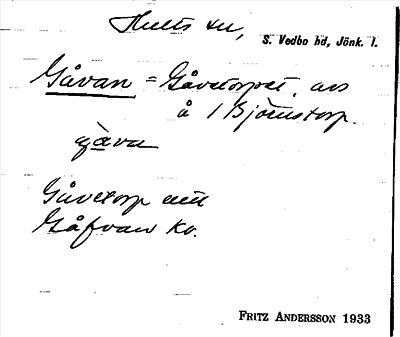 Hults sn,
S. Vedbo hd, Jönk. l.
Gåvan = Gåvetorpet, avs
å 1 Björnstorp.
gåva
Gåvetorp
Gåfvan kv.
FRITZ ANDERSSON 1933